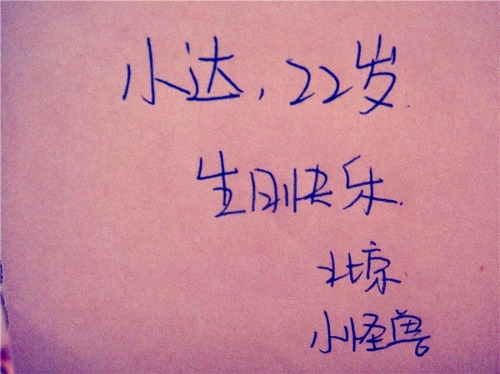 小达，22岁.
生日快乐.
北京
小怪兽